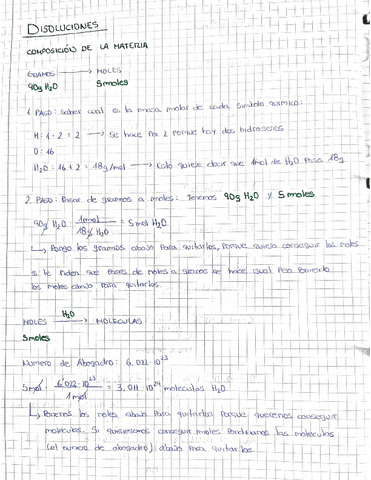 DISOLUCIONES
COMPOSICIÓN DE LA MATERIA
GRAMOS → MOLES
90g H₂O 5 moles
1. PASO: Saber cual es la masa molar de cada símbolo químico:
H: 1 · 2 = 2 → Se hace por 2 porque hay dos hidrogenos
O: 16
H₂O: 16 + 2 = 18g/mol → Esto quiere decir que 1 mol de H₂O pesa 18g
2. PASO: Pasar de gramos a moles: Tenemos 90g H₂O y 5 moles
90g H₂O · 1mol / 18g H₂O = 5 mol H₂O
↳ Pongo los gramos abajo para quitarlos, porque quiero conseguir los moles
si te piden que pases de moles a gramos se hace igual pero poniendo
los moles abajo para quitarlos.
MOLES H₂O → MOLECULAS
5 moles
Numero de Abogadro: 6,022 · 10²³
5 mol · 6,022 · 10²³ / 1 mol = 3,011 · 10²⁴ moleculas H₂O
↳ Ponemos los moles abajo para quitarlos porque queremos conseguir
moleculas. Si quisiesemos conseguir moles pondriamos las moleculas
(el numero de abogadro) abajo para quitarlas